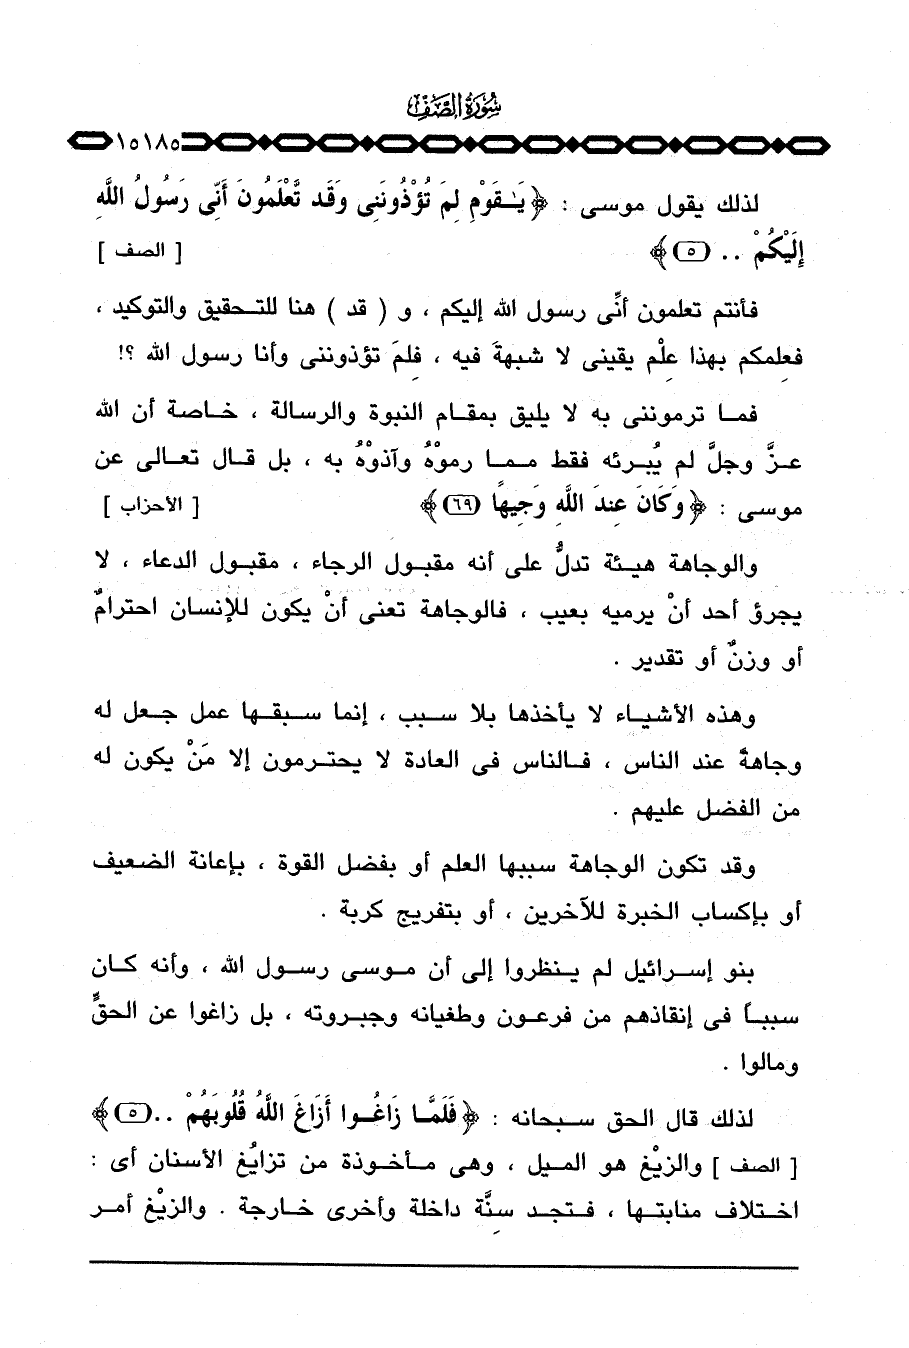 سُورَةُ الصَّفِّ
١٥١٨٥
لذلك يقول موسى : ﴿يَـٰقَوْمِ لِمَ تُؤْذُونَنِى وَقَد تَّعْلَمُونَ أَنِّى رَسُولُ اللَّهِ
إِلَيْكُمْ .. (٥)﴾ [ الصف ]
فأنتم تعلمون أنِّى رسول الله إليكم ، و ( قد ) هنا للتحقيق والتوكيد ،
فعلمكم بهذا علْم يقينى لا شبهةَ فيه ، فلِمَ تؤذوننى وأنا رسول الله ؟!
فما ترموننى به لا يليق بمقام النبوة والرسالة ، خاصة أن الله
عزَّ وجلَّ لم يُبرئه فقط مما رموْهُ وآذوْهُ به ، بل قال تعالى عن
موسى : ﴿وَكَانَ عِندَ اللَّهِ وَجِيهًا (٦٩)﴾ [ الأحزاب ]
والوجاهة هيئة تدلُّ على أنه مقبول الرجاء ، مقبول الدعاء ، لا
يجرؤ أحد أنْ يرميه بعيب ، فالوجاهة تعنى أنْ يكون للإنسان احترامٌ
أو وزنٌ أو تقدير .
وهذه الأشياء لا يأخذها بلا سبب ، إنما سبقها عمل جعل له
وجاهةً عند الناس ، فالناس فى العادة لا يحترمون إلا مَنْ يكون له
من الفضل عليهم .
وقد تكون الوجاهة سببها العلم أو بفضل القوة ، بإعانة الضعيف
أو بإكساب الخبرة للآخرين ، أو بتفريج كربة .
بنو إسرائيل لم ينظروا إلى أن موسى رسول الله ، وأنه كان
سبباً فى إنقاذهم من فرعون وطغيانه وجبروته ، بل زاغوا عن الحقِّ
ومالوا .
لذلك قال الحق سبحانه : ﴿فَلَمَّا زَاغُوا أَزَاغَ اللَّهُ قُلُوبَهُمْ ..(٥)﴾
[ الصف ] والزيْغ هو الميل ، وهى مأخوذة من تزايُغ الأسنان أى :
اختلاف منابتها ، فتجد سِنَّة داخلة وأخرى خارجة . والزيْغ أمر